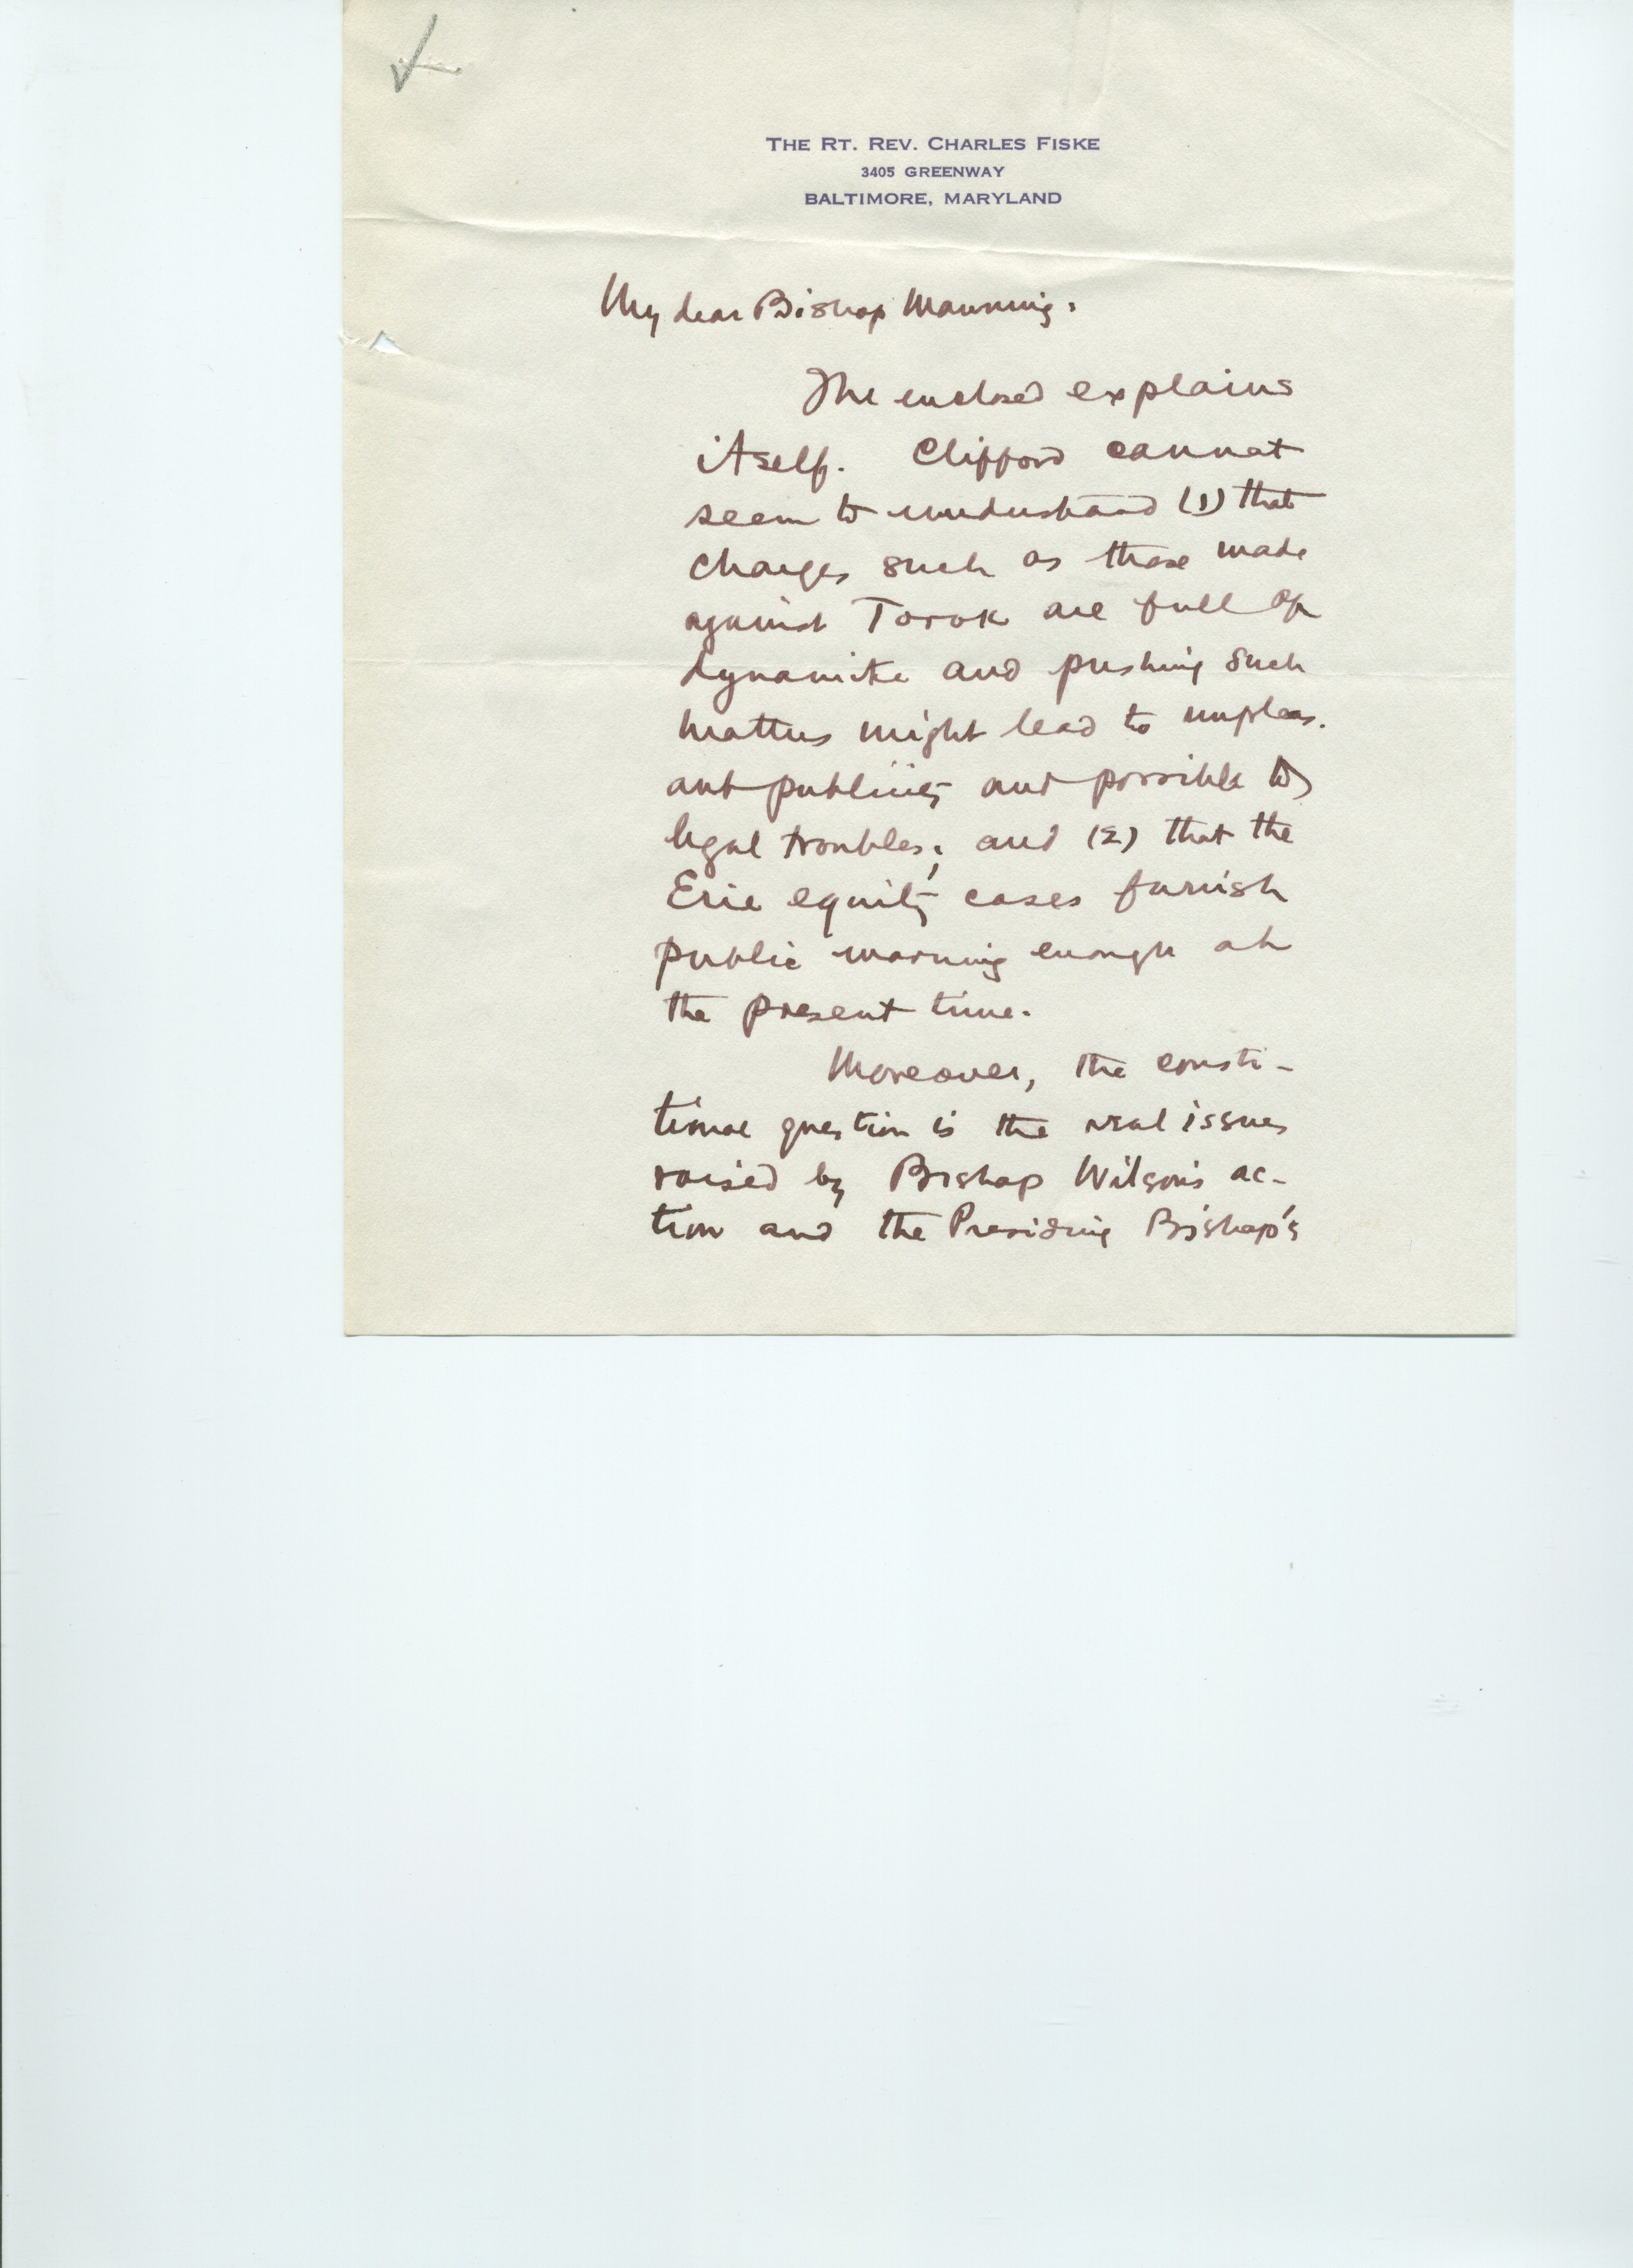 THE RT. REV. CHARLES FISKE
3405 GREENWAY
BALTIMORE, MARYLAND
My dear Bishop Manning:
The enclosed explains
itself. Clifford cannot
seem to understand (1) that
charges such as those made
against Torok are full of
dynamite and pushing such
matters might lead to unpleas-
ant publicity and possible
legal troubles; and (2) that the
Erie equity cases furnish
public warning enough at
the present time.
Moreover, the consti-
tional question is the real issue
raised by Bishop Wilson's ac-
tion and the Presiding Bishop's